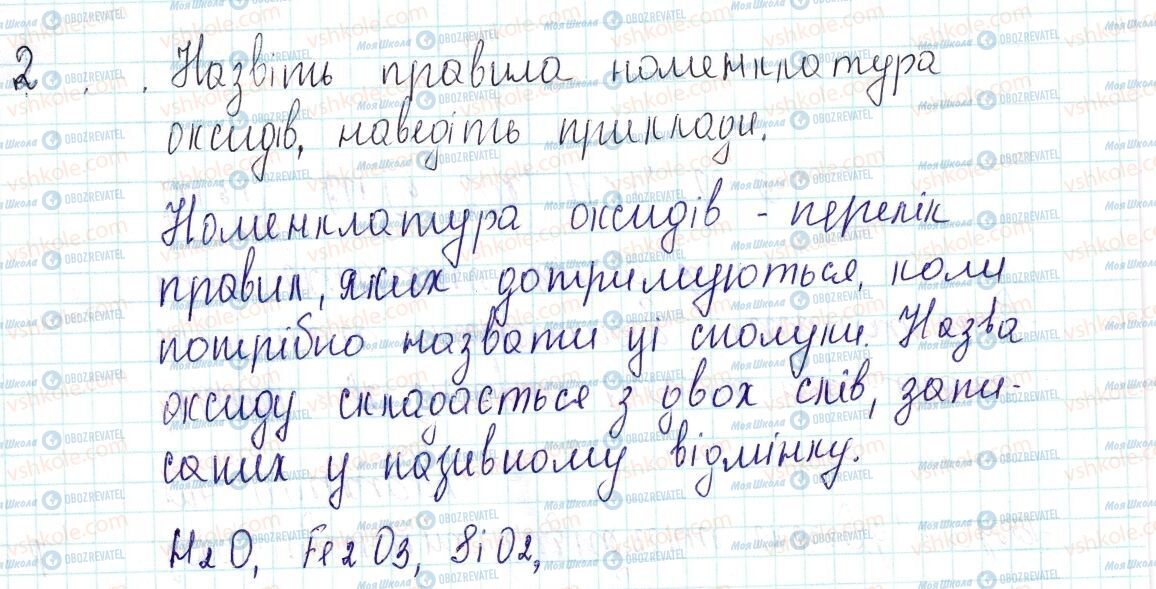 2 . . Назвіть правила номенклатура
оксидів, наведіть приклади.
Номенклатура оксидів - перелік
правил, яких дотримуються, коли
потрібно назвати ці сполуки. Назва
оксиду складається з двох слів, запи-
саних у називному відмінку.
H2O, Fe2O3, SiO2,